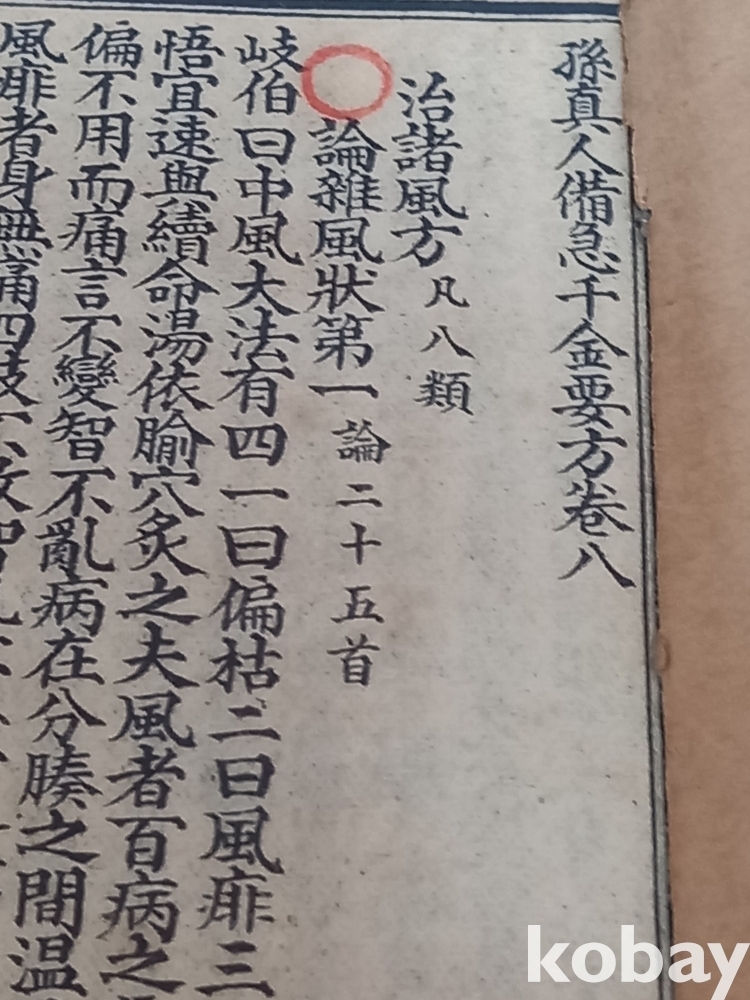 孫真人備急千金要方卷八
治諸風方 凡八類
論雜風狀第一 論二十五首
岐伯曰中風大法有四一曰偏枯二曰風痱三
悟宜速與續命湯依腧穴灸之夫風者百病之
偏不用而痛言不變智不亂病在分腠之間溫
風痱者身無痛四肢不收智亂
kobay